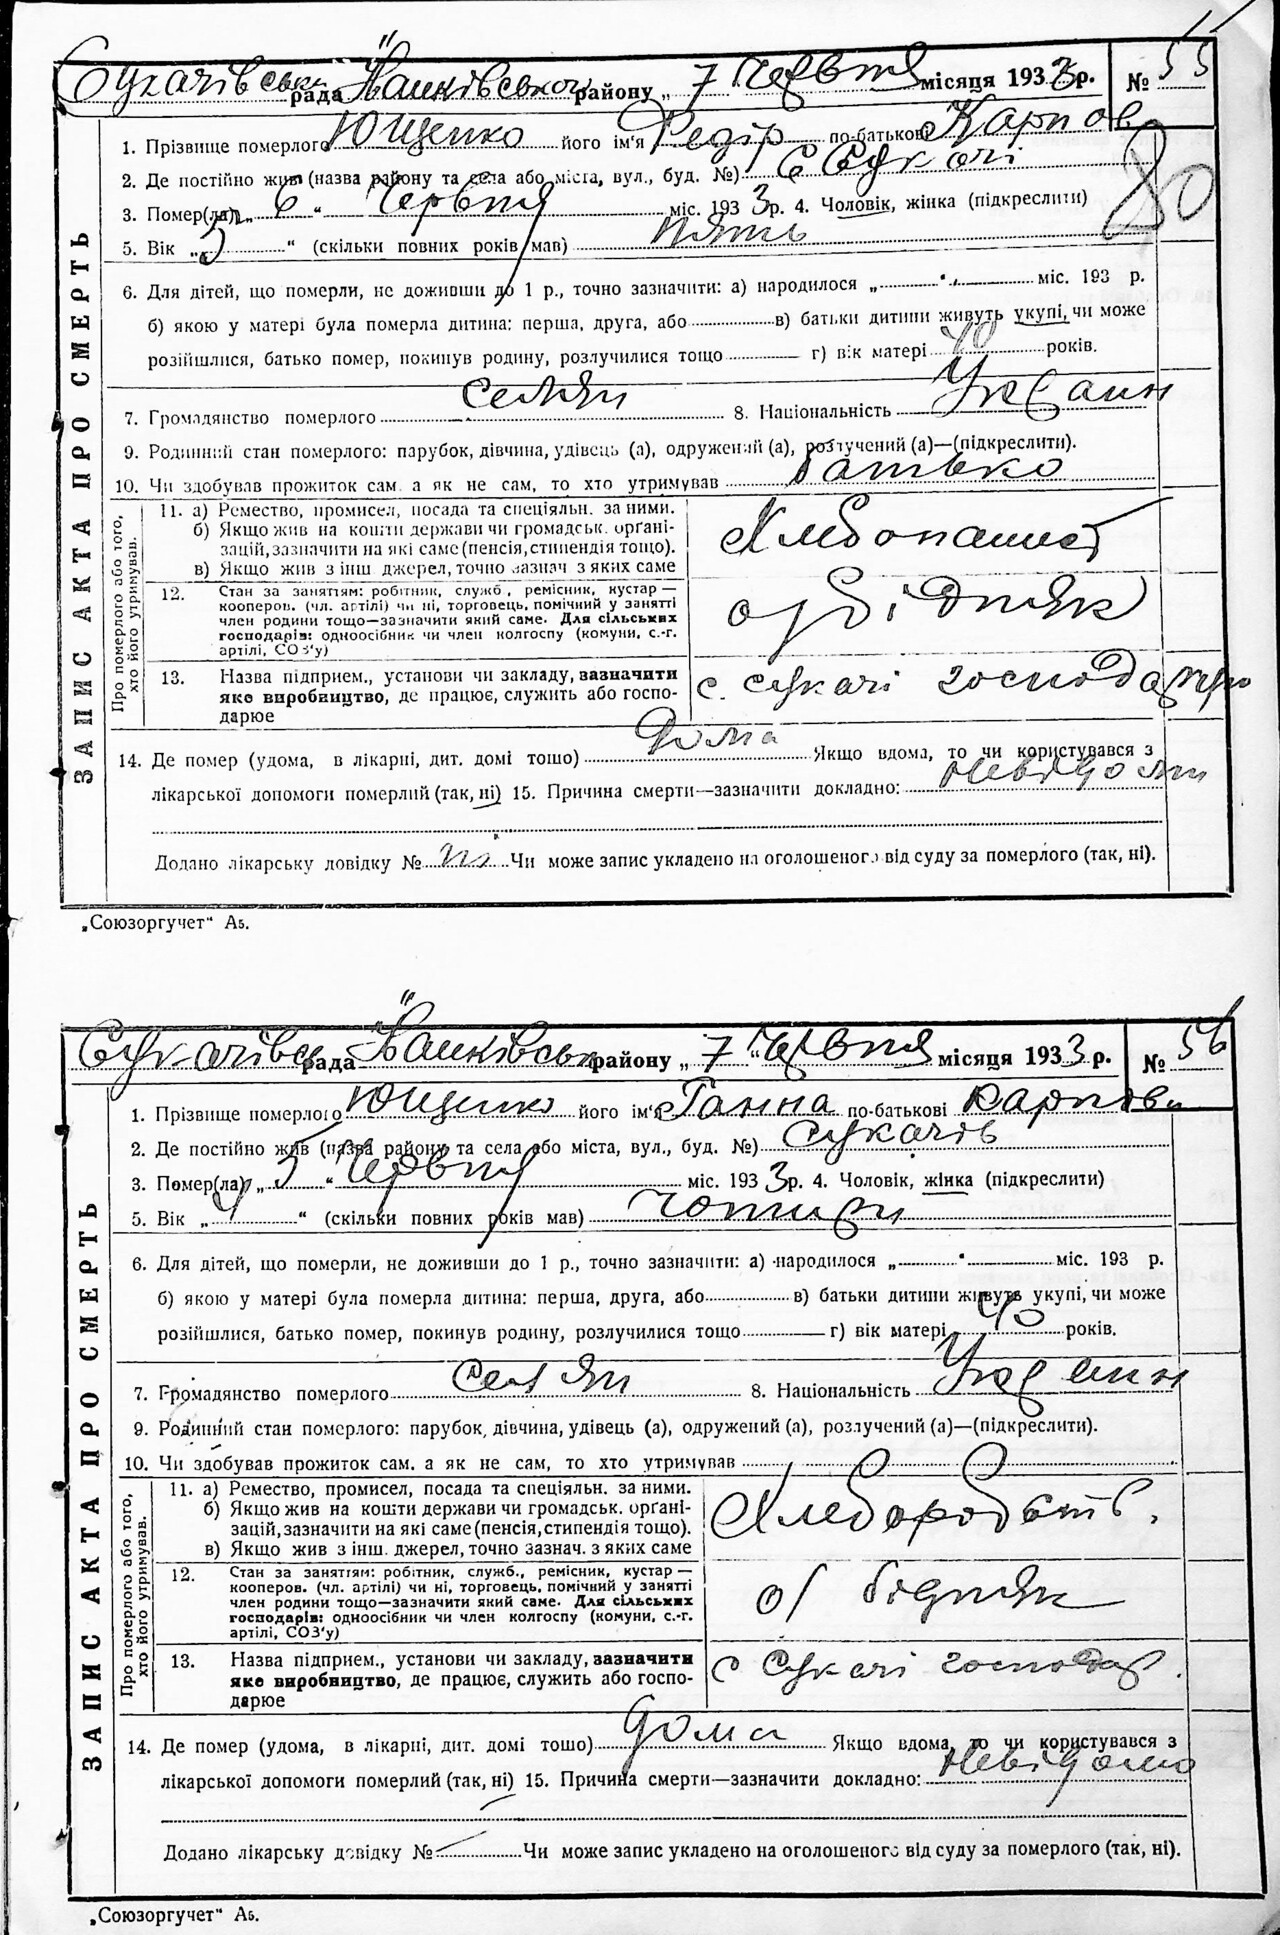 Сукачівська рада Іванківського району „ 7 " Червня місяця 1933 р. № 55
80
1. Прізвище померлого Ющенко його ім'я Федір по-батькові Карпов
2. Де постійно жив (назва району та села або міста, вул., буд. №) с Сукачі
3. Помер(ла) „ 6 " Червня міс. 1933 р. 4. Чоловік, жінка (підкреслити)
5. Вік „ 5 " (скільки повних років мав) пять
6. Для дітей, що померли, не доживши до 1 р., точно зазначити: а) народилося „ " міс. 193 р.
б) якою у матері була померла дитина: перша, друга, або в) батьки дитини живуть укупі, чи може
розійшлися, батько помер, покинув родину, розлучилися тощо г) вік матері 40 років.
7. Громадянство померлого селян 8. Національність Украин
9. Родинний стан померлого: парубок, дівчина, удівець (а), одружений (а), розлучений (а)—(підкреслити).
10. Чи здобував прожиток сам. а як не сам, то хто утримував батько
ЗАПИС АКТА ПРО СМЕРТЬ
Про померлого або того, хто його утримував.
11. а) Ремество, промисел, посада та спеціяльн. за ними.
б) Якщо жив на кошти держави чи громадськ. орґані-
зацій, зазначити на які саме (пенсія, стипендія тощо).
в) Якщо жив з інш. джерел, точно зазнач. з яких саме
Хлебопашест
12. Стан за заняттям: робітник, служб., ремісник, кустар —
кооперов. (чл. артілі) чи ні, торговець, помічний у занятті
член родини тощо—зазначити який саме. Для сільських
господарів: одноосібник чи член колгоспу (комуни, с.-г.
артілі, СОЗ'у)
о/бідняк
13. Назва підприєм., установи чи закладу, зазначити
яке виробництво, де працює, служить або госпо-
дарює
с. Сукачі
14. Де помер (удома, в лікарні, дит. домі тощо) дома Якщо вдома, то чи користувався з
лікарської допомоги померлий (так, ні) 15. Причина смерти—зазначити докладно:
Додано лікарську довідку № ні Чи може запис укладено на оголошеного від суду за померлого (так, ні).
„Союзоргучет" А5.
Сукачівськ рада Іванківськ району „ 7 " Червня місяця 1933 р. № 56
1. Прізвище померлого Ющенко його ім'я Ганна по-батькові Карпови
2. Де постійно жив (назва району та села або міста, вул., буд. №) Сукачів
3. Помер(ла) „ 5 " Червня міс. 1933 р. 4. Чоловік, жінка (підкреслити)
5. Вік „ 4 " (скільки повних років мав) чотири
6. Для дітей, що померли, не доживши до 1 р., точно зазначити: а) народилося „ " міс. 193 р.
б) якою у матері була померла дитина: перша, друга, або в) батьки дитини живуть укупі, чи може
розійшлися, батько помер, покинув родину, розлучилися тощо г) вік матері 40 років.
7. Громадянство померлого селян 8. Національність Украин
9. Родинний стан померлого: парубок, дівчина, удівець (а), одружений (а), розлучений (а)—(підкреслити).
10. Чи здобував прожиток сам. а як не сам, то хто утримував
ЗАПИС АКТА ПРО СМЕРТЬ
Про померлого або того, хто його утримував.
11. а) Ремество, промисел, посада та спеціяльн. за ними.
б) Якщо жив на кошти держави чи громадськ. орґані-
зацій, зазначити на які саме (пенсія, стипендія тощо).
в) Якщо жив з інш. джерел, точно зазнач. з яких саме
12. Стан за заняттям: робітник, служб., ремісник, кустар —
кооперов. (чл. артілі) чи ні, торговець, помічний у занятті
член родини тощо—зазначити який саме. Для сільських
господарів: одноосібник чи член колгоспу (комуни, с.-г.
артілі, СОЗ'у)
о/ бідняк
13. Назва підприєм., установи чи закладу, зазначити
яке виробництво, де працює, служить або госпо-
дарює
с Сукачі господар.
14. Де помер (удома, в лікарні, дит. домі тощо) дома Якщо вдома, то чи користувався з
лікарської допомоги померлий (так, ні) 15. Причина смерти—зазначити докладно: невідомо
Додано лікарську довідку № Чи може запис укладено на оголошеного від суду за померлого (так, ні).
„Союзоргучет" А5.